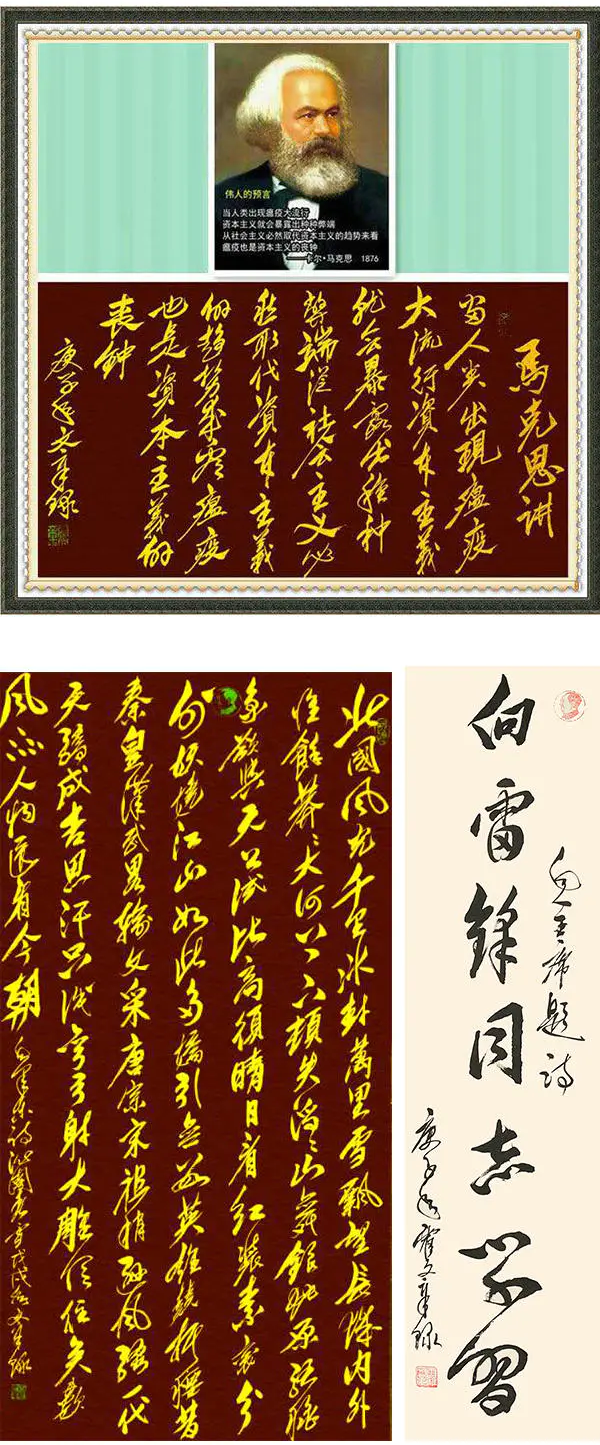 伟人的预言
当人类出现瘟疫大流行
资本主义就会暴露出种种弊端
从社会主义必然取代资本主义的趋势来看
瘟疫也是资本主义的丧钟
——卡尔·马克思 1876
馬克思讲
当人类出現瘟疫
大流行资本主義
就会暴露出种种
弊端從社会主义必
然取代资本主義
的趋势来看瘟疫
也是资本主義的
丧钟
庚子年文章録
北國風光千里冰封萬里雪飄望長城内外
惟餘莽々大河上下頓失滔々山舞銀蛇原馳蠟
象欲與天公試比高須晴日看红装素裹分
外妖嬈江山如此多嬌引無數英雄競折腰惜
秦皇漢武略輸文采唐宗宋祖稍遜風騷一代
天驕成吉思汗只識弯弓射大雕俱往矣數
風流人物還看今朝
毛澤東詩沁園春雪戊戌年文章録
向雷鋒同志学習
毛主席題詩
庚子年霍文章録